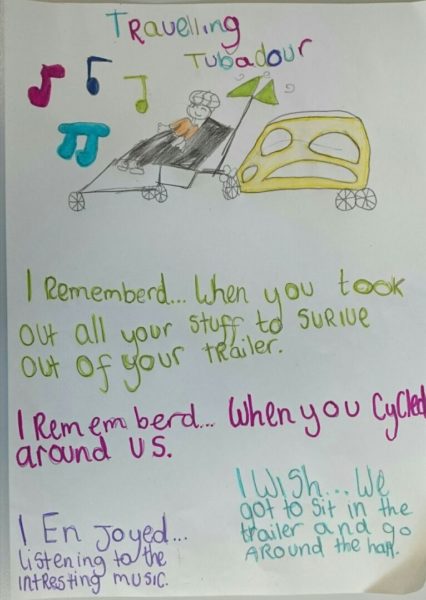 Travelling
Tubadour
I Rememberd... When you took
out all your stuff to surive
out of your trailer.
I Rememberd... When you Cycled
around us.
I Wish... We
got to sit in the
trailer and go
around the hall.
I En Joyed...
listening to the
intresting music.